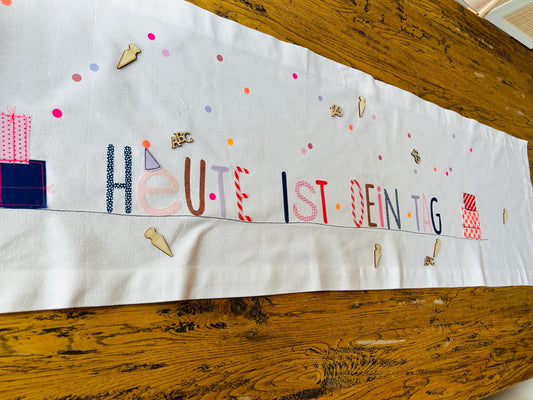 HeUTE IST·DEiN·TAG
ABC
123